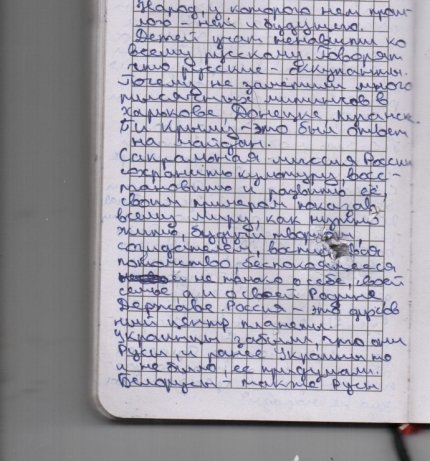 Народ у которого нет прош-
лого нет и будущего.
Детей учат ненависти ко
всему русскому. Говорят
что русские - оккупанты.
Почему не заметили много
тысячных митингов в
Харькове, Донецке, Луганск.
и Крыму - это был ответ
на майдан.
Сакральная миссия России
сохранить культуру, восс-
тановить и развить её,
своим примером показав
всему миру, как нужно
жить, будучи творцом,
созидателем, воспитывая
потомство беспокоящееся
не только о себе, своей
семье, а и о своей Родине,
Державе. Россия - это духов
ный центр планеты.
Украинцы забыли, что они
Русы, и ранее Украины то
и не было, её придумали.
Белорусы - также Русы